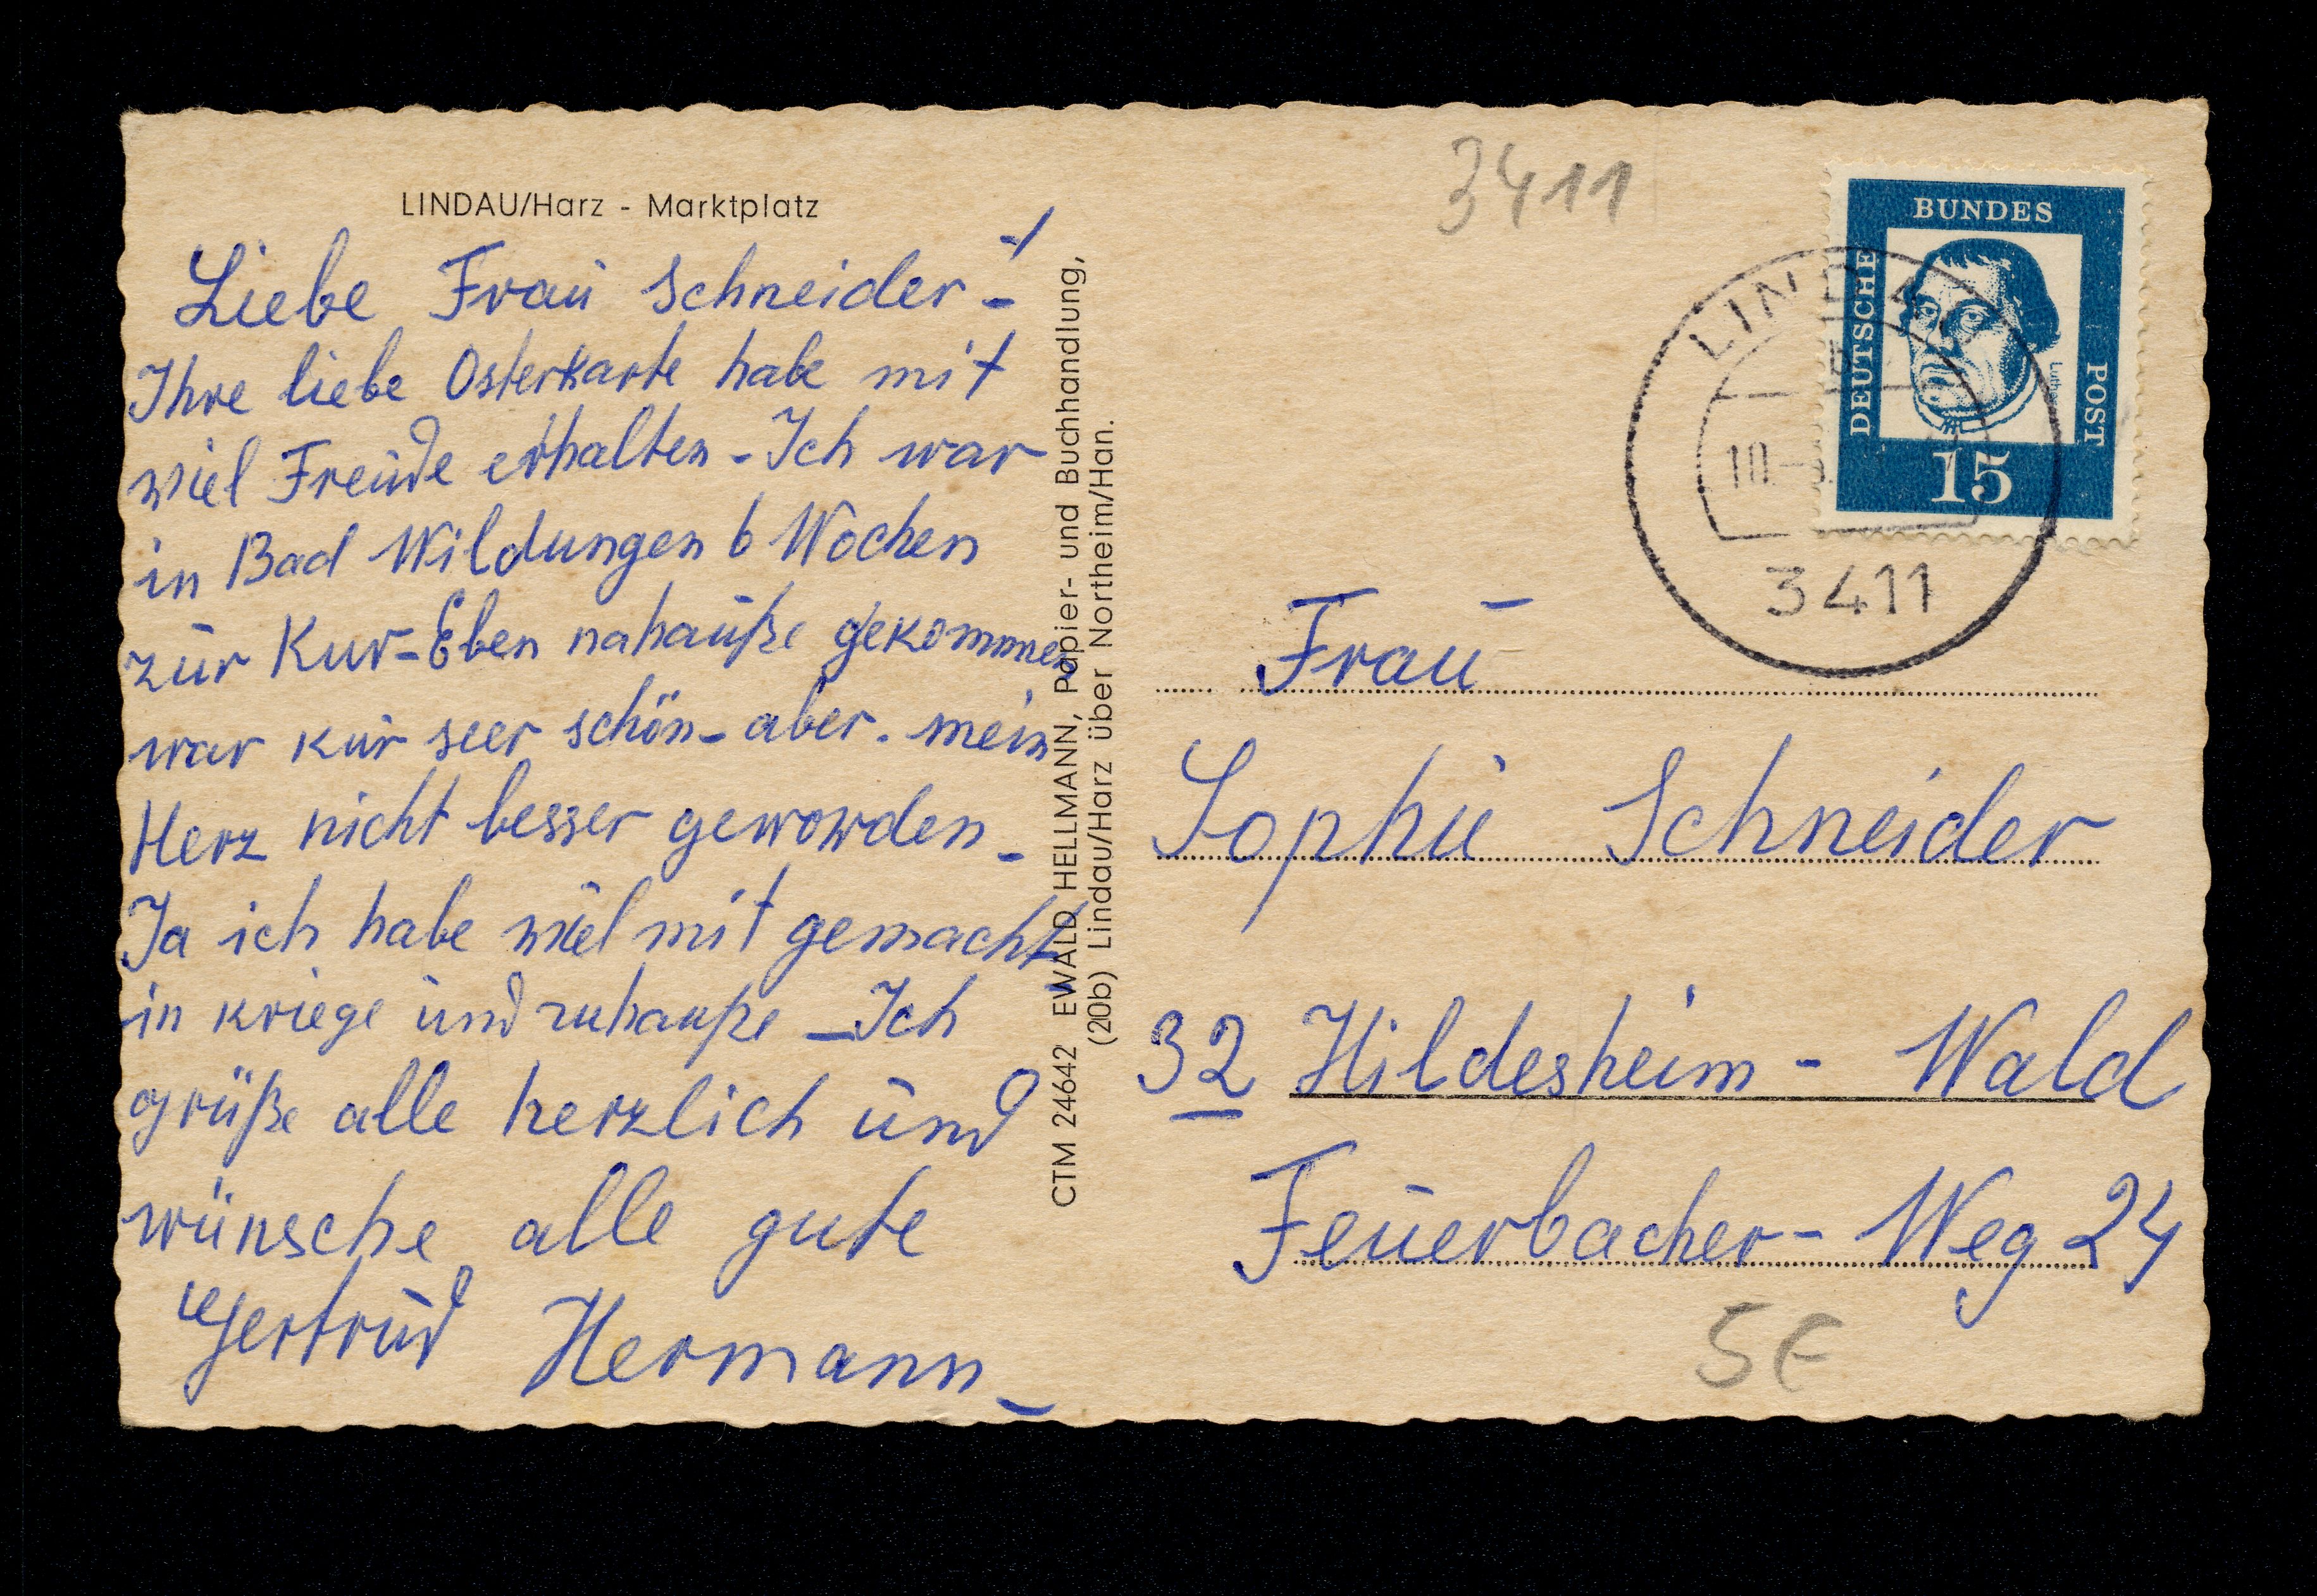 LINDAU/Harz - Marktplatz
Liebe Frau Schneider!
Ihre liebe Osterkarte habe mit
viel Freude erhalten - Ich war
in Bad Wildungen 6 Wochen
zur Kur - Eben nahauße gekommen
war kur seer schön - aber. mein
Herz nicht besser geworden -
Ja ich habe viel mit gemacht -
in kriege und zuhauße - Ich
grüße alle herzlich und
wünsche alle gute
Gertrud Hermann -
CTM 24642 EWALD HELLMANN, Papier- und Buchhandlung,
(20b) Lindau/Harz über Northeim/Han.
3411
BUNDES
DEUTSCHE
POST
Luther
15
LINDAU
3411
Frau
Sophie Schneider
32 Hildesheim - Wald
Feuerbacher - Weg 24
5€